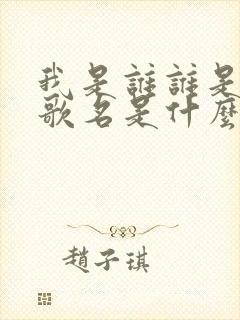 我是誰誰是
歌名是什麼
趙子琪